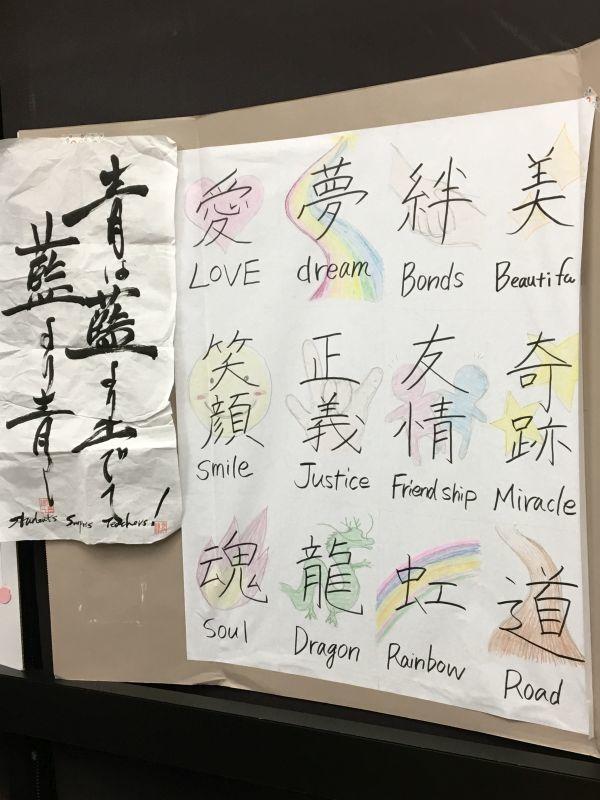 青は藍より出でて
藍より青し
Students Surpass Teachers!
愛 夢 絆 美
LOVE dream Bonds Beautifu
笑顔 正義 友情 奇跡
Smile Justice Friendship Miracle
魂 龍 虹 道
Soul Dragon Rainbow Road